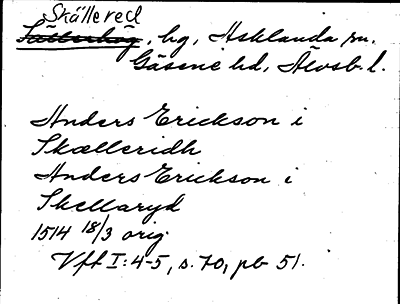 Skällered
hg, Asklanda sn.
Gäsene hd, Älvsb. l.
Anders Erickson i
Skælleridh
Anders Erickson i
Skellaryd
1514 18/3 orig
Vff I:4-5, s. 70, pb 51.